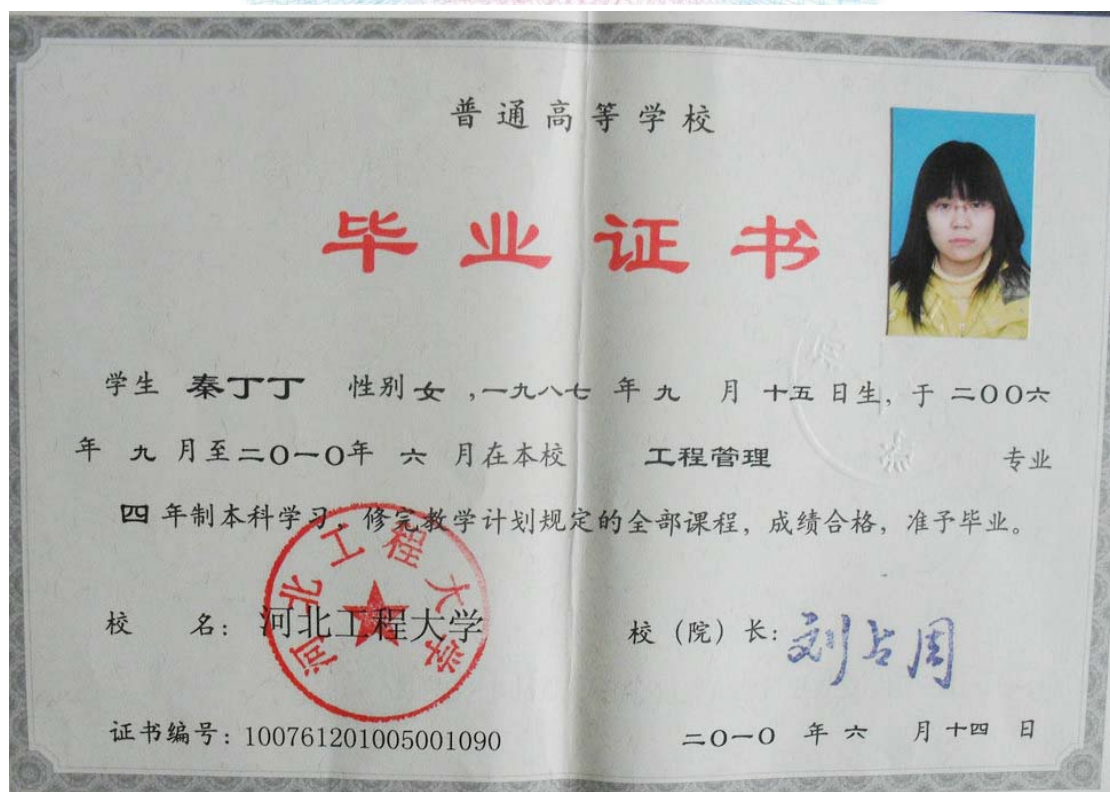 普通高等学校
毕业证书
学生 秦丁丁 性别 女 ,一九八七 年 九 月 十五 日生, 于 二〇〇六
年 九 月至二〇一〇年 六 月在本校 工程管理 专业
四 年制本科学习, 修完教学计划规定的全部课程, 成绩合格, 准予毕业。
河北工程大学
校 名: 河北工程大学 校 (院) 长: 刘占周
证书编号: 100761201005001090 二〇一〇 年 六 月 十四 日